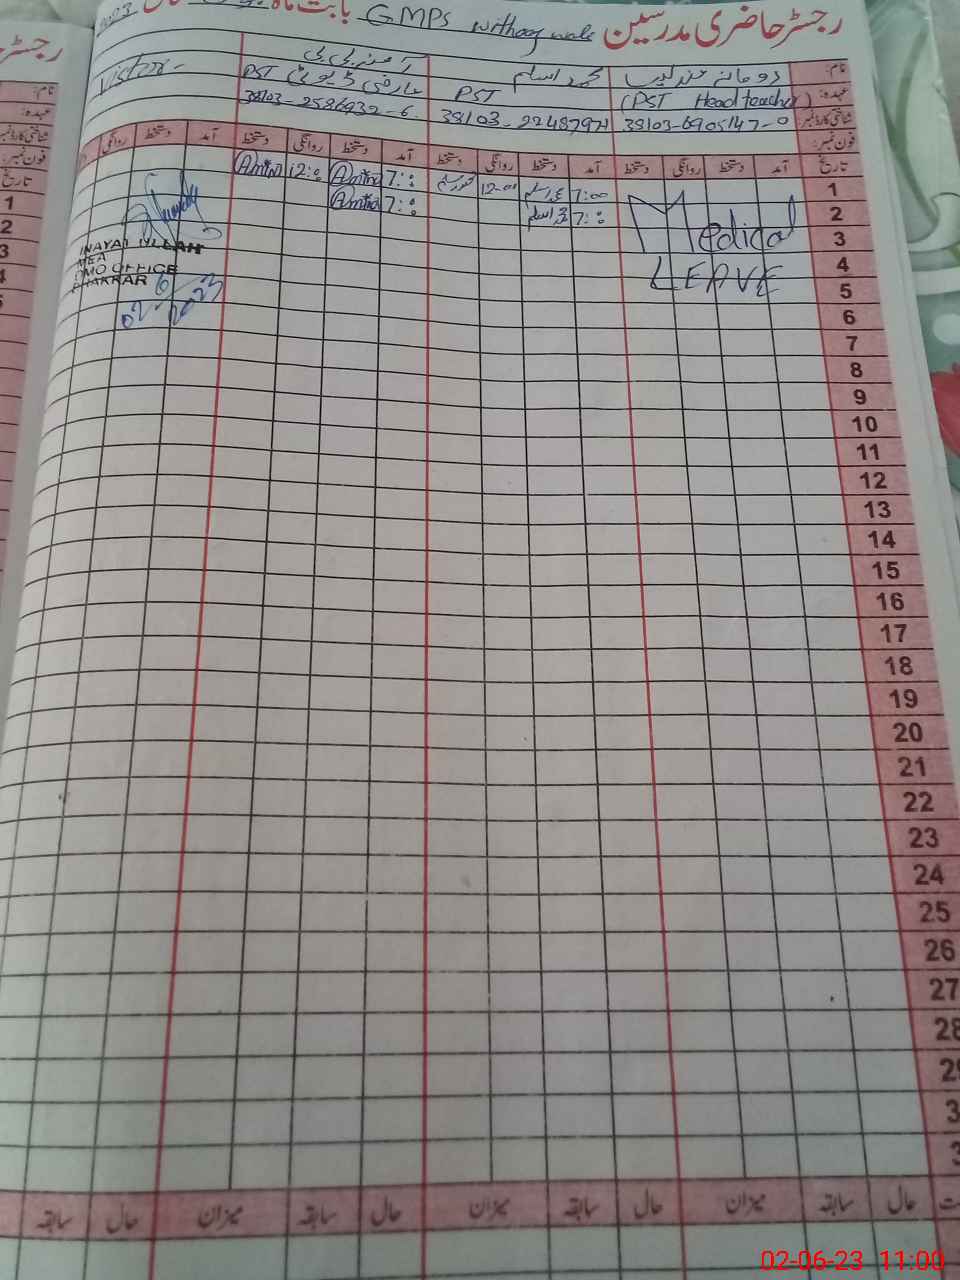 رجسٹر حاضری مدرسین GMPS بابت ماہ 2023
نام: محمد اسلم Visitor
عہدہ: (PST Head teacher) PST عارضی ڈیوٹی PST
شناختی کارڈ نمبر: 38103-6905147-0 38103-2586932-6
فون نمبر:
تاریخ آمد دستخط روانگی دستخط آمد دستخط روانگی دستخط آمد دستخط روانگی دستخط آمد دستخط روانگی
1 7:00 محمد اسلم 12-00 7:00 Amina 12:00 Amina
2 Medical 7:00 محمد اسلم 7:00 Amina
3
INAYAT ULLAH
4 LEAVE
MEA
DMO OFFICE
5
BHAKKAR
02/6/2023
6
7
8
9
10
11
12
13
14
15
16
17
18
19
20
21
22
23
24
25
26
27
28
حال سابقہ میزان حال سابقہ میزان حال سابقہ میزان حال سابقہ
02-06-23 11:00